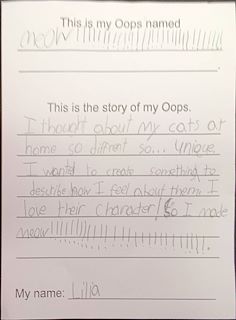 This is my Oops named
meow!!!!!!!!!!!!!!!!!!!!!!
.
This is the story of my Oops.
I thought about my cats at
home so diffrent so... unique.
I wanted to create something to
describe how I feel about them. I
love their character! So I made
meow!!!!!!!!!!!!!!!!!!!!!.
My name: Lilla